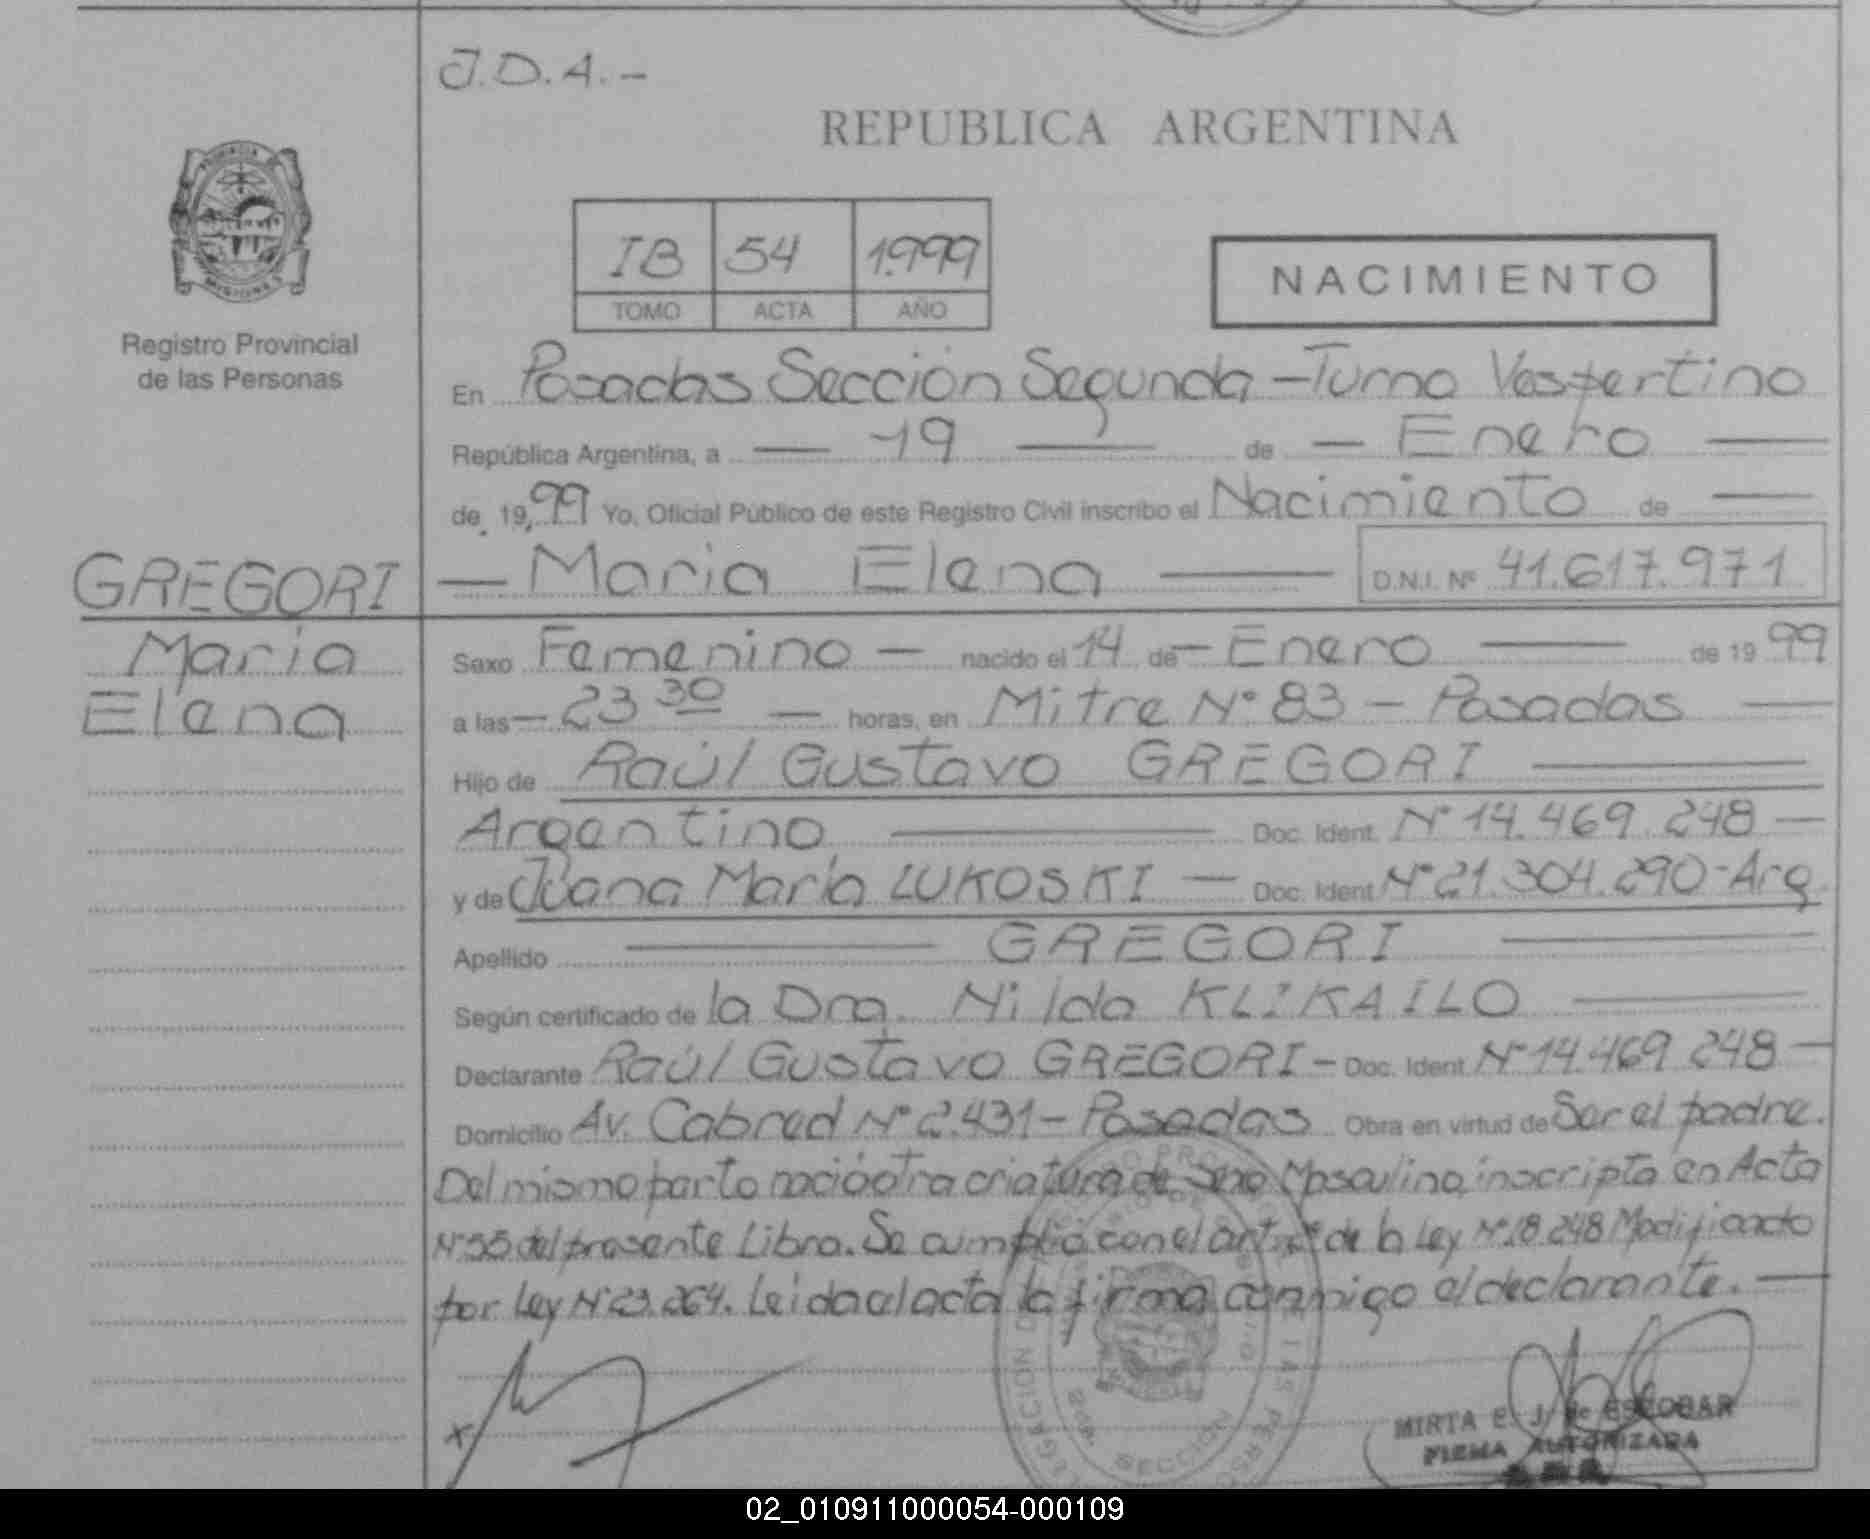 J.D.A.-
REPUBLICA ARGENTINA
IB 54 1.999
TOMO ACTA AÑO
NACIMIENTO
Registro Provincial
de las Personas
En Posadas Sección Segunda - Turno Vespertino
República Argentina, a — 19 — de — Enero —
de 1999 Yo, Oficial Público de este Registro Civil inscribo el Nacimiento de —
GREGORI
— Maria Elena — D.N.I. Nº 41.617.971
Maria
Elena
Sexo Femenino — nacido el 14 de — Enero — de 1999
a las — 23 30 — horas, en Mitre Nº 83 - Posadas —
Hijo de Raúl Gustavo GREGORI —
Argentino — Doc. Ident. Nº 14.469.248 —
y de Juana María LUKOSKI — Doc. Ident. Nº 21.304.290 - Arg.
Apellido — GREGORI —
Según certificado de la Dra. Nilda KLIKAILO —
Declarante Raúl Gustavo GREGORI - Doc. Ident. Nº 14.469.248 —
Domicilio Av. Cabred Nº 2.431 - Posadas Obra en virtud de Ser el padre.
Del mismo parto nació otra criatura de Sexo Masculino, inscripta en Acta
Nº 55 del presente Libro. Se cumplió con el art. de la Ley Nº 18.248 Modificado
por Ley Nº 23.264. Leida el acta la firma conmigo el declarante. —
MIRTA E. J. de ESCOBAR
FIRMA AUTORIZADA
SECCION
02_010911000054-000109